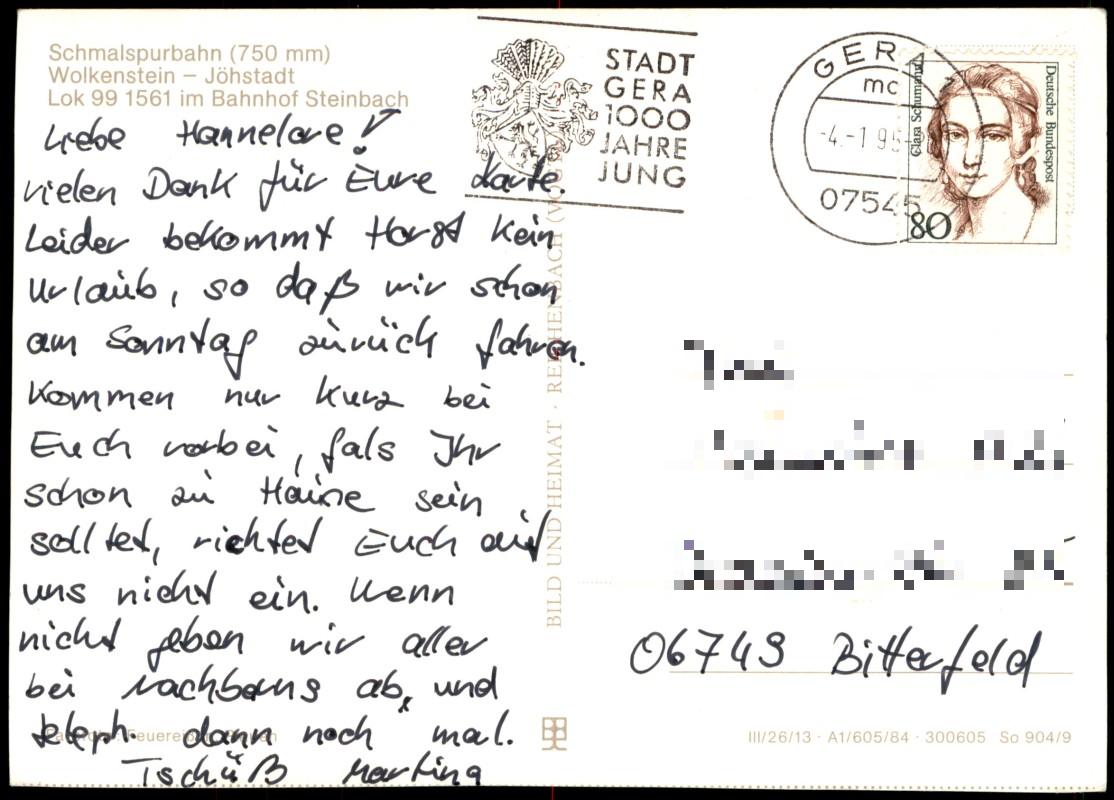 Schmalspurbahn (750 mm)
Wolkenstein – Jöhstadt
Lok 99 1561 im Bahnhof Steinbach
Liebe Hannelore!
vielen Dank für Eure Karte.
Leider bekommt Horst kein
Urlaub, so daß wir schon
am Sonntag zurück fahren.
Kommen nur kurz bei
Euch vorbei, fals Ihr
schon zu Hause sein
solltet, richtet Euch auf
uns nicht ein. Wenn
nicht geben wir alles
bei Nachberns ab, und
teleph. dann noch mal.
Tschüß Martina
STADT
GERA
1000
JAHRE
JUNG
GERA
mc
-4.-1 95-
07545
Clara Schumann
Deutsche Bundespost
80
BILD UND HEIMAT · REICHENBACH
06749 Bitterfeld
III/26/13 · A1/605/84 · 300605 So 904/9